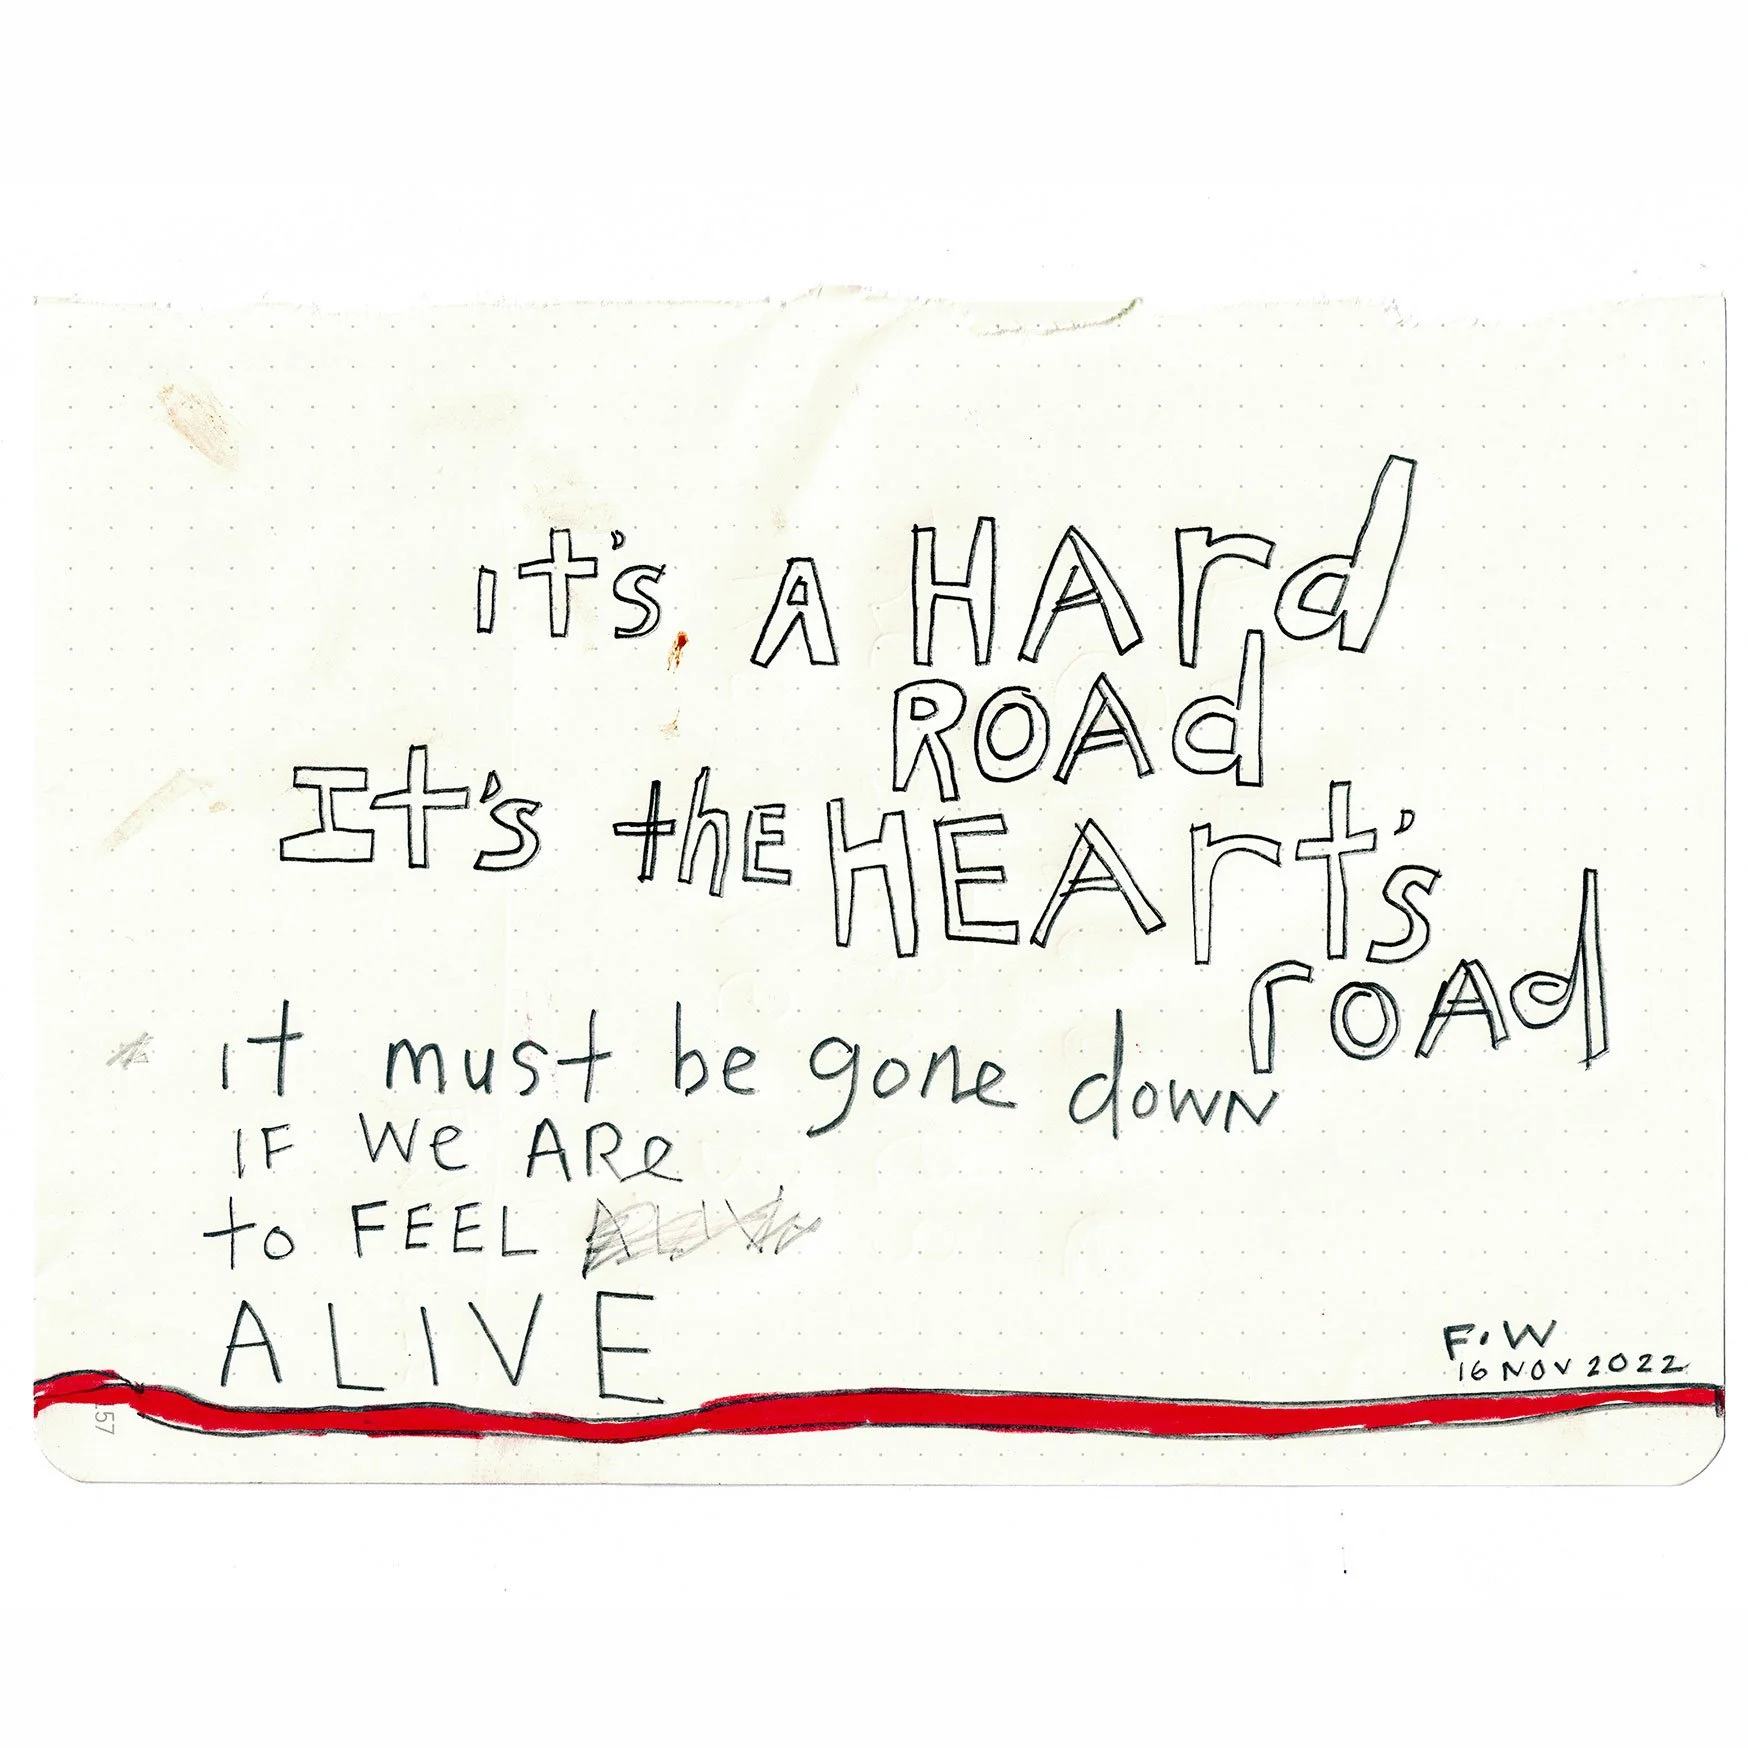 it's A HArd
ROAd
It's thE HEArt's
roAd
it must be gone down
IF We ARe
to FEEL
ALIVE
F.W
16 NOV 2022
157